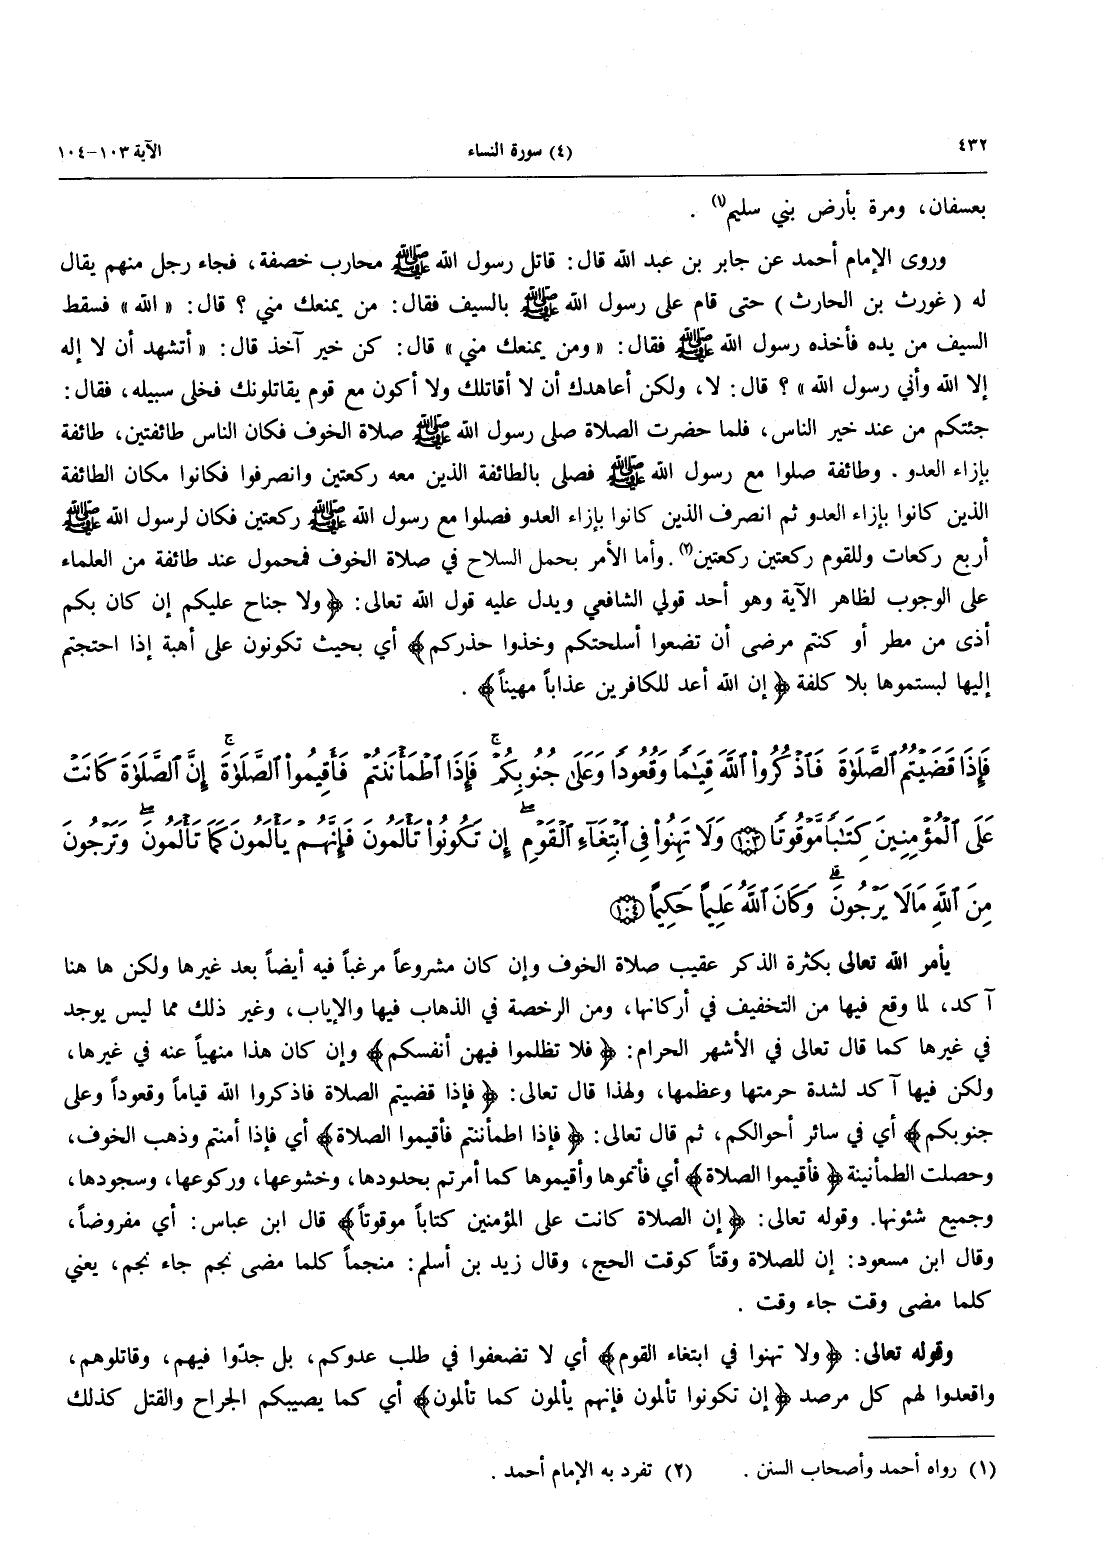 ٤٣٢
(٤) سورة النساء
الآية ١٠٣-١٠٤
بعسفان، ومرة بأرض بني سليم(١) .
وروى الإمام أحمد عن جابر بن عبد الله قال: قاتل رسول الله ﷺ محارب خصفة، فجاء رجل منهم يقال
له ( غورث بن الحارث ) حتى قام على رسول الله ﷺ بالسيف فقال: من يمنعك مني ؟ قال: « الله » فسقط
السيف من يده فأخذه رسول الله ﷺ فقال: « ومن يمنعك مني » قال: كن خير آخذ قال: « أتشهد أن لا إله
إلا الله وأني رسول الله » ؟ قال: لا، ولكن أعاهدك أن لا أقاتلك ولا أكون مع قوم يقاتلونك فخلى سبيله، فقال:
جئتكم من عند خير الناس، فلما حضرت الصلاة صلى رسول الله ﷺ صلاة الخوف فكان الناس طائفتين، طائفة
بإزاء العدو . وطائفة صلوا مع رسول الله ﷺ فصلى بالطائفة الذين معه ركعتين وانصرفوا فكانوا مكان الطائفة
الذين كانوا بإزاء العدو ثم انصرف الذين كانوا بإزاء العدو فصلوا مع رسول الله ﷺ ركعتين فكان لرسول الله ﷺ
أربع ركعات وللقوم ركعتين ركعتين(٢) . وأما الأمر بحمل السلاح في صلاة الخوف فمحمول عند طائفة من العلماء
على الوجوب لظاهر الآية وهو أحد قولي الشافعي ويدل عليه قول الله تعالى: ﴿ ولا جناح عليكم إن كان بكم
أذى من مطر أو كنتم مرضى أن تضعوا أسلحتكم وخذوا حذركم﴾ أي بحيث تكونون على أهبة إذا احتجتم
إليها لبستموها بلا كلفة ﴿ إن الله أعد للكافرين عذاباً مهيناً﴾ .
فَإِذَا قَضَيْتُمُ ٱلصَّلَوٰةَ فَٱذْكُرُوا۟ ٱللَّهَ قِيَـٰمًا وَقُعُودًا وَعَلَىٰ جُنُوبِكُمْ ۚ فَإِذَا ٱطْمَأْنَنتُمْ فَأَقِيمُوا۟ ٱلصَّلَوٰةَ ۚ إِنَّ ٱلصَّلَوٰةَ كَانَتْ
عَلَى ٱلْمُؤْمِنِينَ كِتَـٰبًا مَّوْقُوتًا ١٠٣ وَلَا تَهِنُوا۟ فِى ٱبْتِغَآءِ ٱلْقَوْمِ ۖ إِن تَكُونُوا۟ تَأْلَمُونَ فَإِنَّهُمْ يَأْلَمُونَ كَمَا تَأْلَمُونَ ۖ وَتَرْجُونَ
مِنَ ٱللَّهِ مَا لَا يَرْجُونَ ۗ وَكَانَ ٱللَّهُ عَلِيمًا حَكِيمًا ١٠٤
يأمر الله تعالى بكثرة الذكر عقيب صلاة الخوف وإن كان مشروعاً مرغباً فيه أيضاً بعد غيرها ولكن ها هنا
آكد، لما وقع فيها من التخفيف في أركانها، ومن الرخصة في الذهاب فيها والإياب، وغير ذلك مما ليس يوجد
في غيرها كما قال تعالى في الأشهر الحرام: ﴿ فلا تظلموا فيهن أنفسكم﴾ وإن كان هذا منهياً عنه في غيرها،
ولكن فيها آكد لشدة حرمتها وعظمها، ولهذا قال تعالى: ﴿ فإذا قضيتم الصلاة فاذكروا الله قياماً وقعوداً وعلى
جنوبكم﴾ أي في سائر أحوالكم، ثم قال تعالى: ﴿ فإذا اطمأننتم فأقيموا الصلاة﴾ أي فإذا أمنتم وذهب الخوف،
وحصلت الطمأنينة ﴿ فأقيموا الصلاة﴾ أي فأتموها وأقيموها كما أمرتم بحدودها، وخشوعها، وركوعها، وسجودها،
وجميع شئونها. وقوله تعالى: ﴿ إن الصلاة كانت على المؤمنين كتاباً موقوتاً﴾ قال ابن عباس: أي مفروضاً،
وقال ابن مسعود: إن للصلاة وقتاً كوقت الحج، وقال زيد بن أسلم: منجماً كلما مضى نجم جاء نجم، يعني
كلما مضى وقت جاء وقت .
وقوله تعالى: ﴿ ولا تهنوا في ابتغاء القوم﴾ أي لا تضعفوا في طلب عدوكم، بل جدّوا فيهم، وقاتلوهم،
واقعدوا لهم كل مرصد ﴿ إن تكونوا تألمون فإنهم يألمون كما تألمون﴾ أي كما يصيبكم الجراح والقتل كذلك
(١) رواه أحمد وأصحاب السنن . (٢) تفرد به الإمام أحمد .